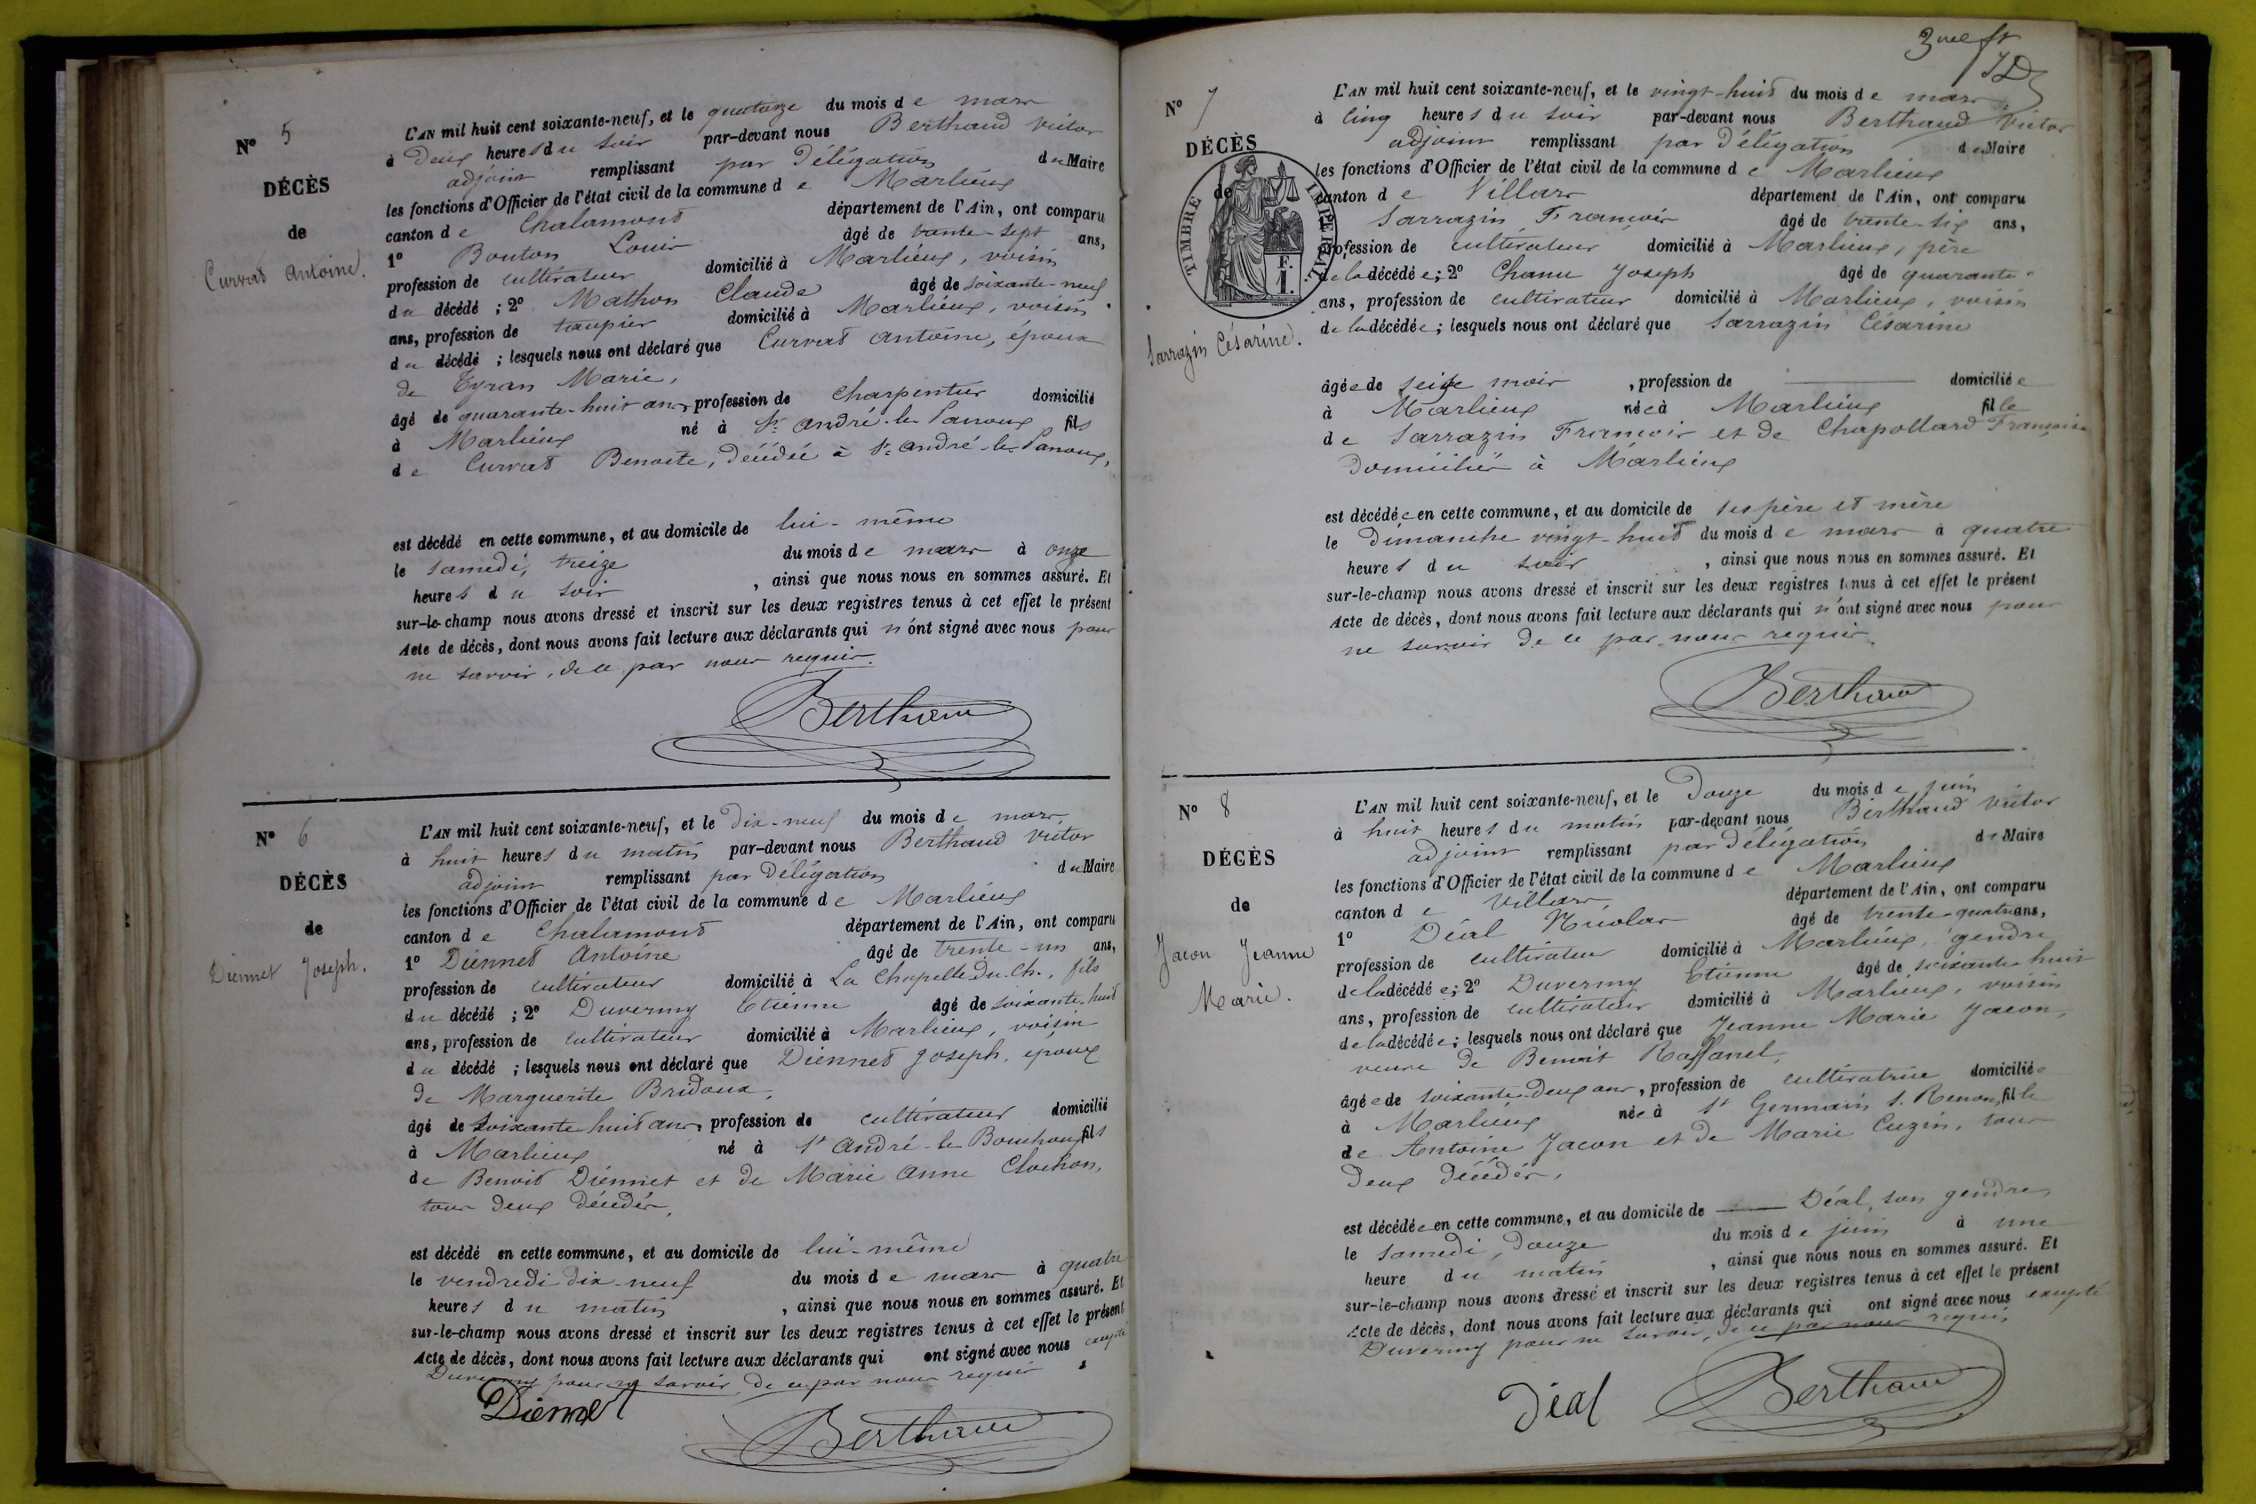 N° 5
DÉCÈS
de
Curvat Antoine.
L'AN mil huit cent soixante-neuf, et le quatorze du mois de mars
à Deux heures du soir par-devant nous Berthaud Victor
adjoint remplissant par Délégation du Maire
les fonctions d'Officier de l'état civil de la commune de Marlieux
canton de Chalamont département de l'Ain, ont comparu
1° Bouton Louis âgé de trente-sept ans,
profession de cultivateur domicilié à Marlieux, voisin
du décédé ; 2° Mathon Claude âgé de soixante-neuf
ans, profession de taupier domicilié à Marlieux, voisin
du décédé ; lesquels nous ont déclaré que Curvat Antoine, époux
de Marie,
âgé de quarante-huit ans, profession de charpentier domicilié
à Marlieux né à St André-le-Panoux fils
de Curvat Benoite, décédée à St André-le-Panoux,
est décédé en cette commune, et au domicile de lui-même
le samedi, treize du mois de mars à onze
heures du soir , ainsi que nous nous en sommes assuré. Et
sur-le-champ nous avons dressé et inscrit sur les deux registres tenus à cet effet le présent
Acte de décès, dont nous avons fait lecture aux déclarants qui n'ont signé avec nous pour
ne savoir, de ce par nous requis.
Berthaud
N° 6
DÉCÈS
de
Diennet Joseph.
L'AN mil huit cent soixante-neuf, et le dix-neuf du mois de mars
à huit heures du matin par-devant nous Berthaud Victor
adjoint remplissant par Délégation du Maire
les fonctions d'Officier de l'état civil de la commune de Marlieux
canton de Chalamont département de l'Ain, ont comparu
1° Diennet Antoine âgé de trente-un ans,
profession de cultivateur domicilié à La Chapelle du Ch., fils
du décédé ; 2° Duverny Etienne âgé de soixante-huit
ans, profession de cultivateur domicilié à Marlieux, voisin
du décédé ; lesquels nous ont déclaré que Diennet Joseph, époux
de Marguerite Bridoux,
âgé de soixante huit ans, profession de cultivateur domicilié
à Marlieux né à St André-le-Bouchoux fils
de Benoit Diennet et de Marie Anne Clochon,
tous deux décédés,
est décédé en cette commune, et au domicile de lui-même
le vendredi dix-neuf du mois de mars à quatre
heures du matin , ainsi que nous nous en sommes assuré. Et
sur-le-champ nous avons dressé et inscrit sur les deux registres tenus à cet effet le présent
Acte de décès, dont nous avons fait lecture aux déclarants qui ont signé avec nous excepté
Duverny pour ne savoir, de ce par nous requis
Diennet
Berthaud
N° 7
DÉCÈS
de
TIMBRE IMPÉRIAL
F. 1.
Sarrazin Césarine.
L'AN mil huit cent soixante-neuf, et le vingt-huit du mois de mars
à cinq heures du soir par-devant nous Berthaud Victor
adjoint remplissant par Délégation du Maire
les fonctions d'Officier de l'état civil de la commune de Marlieux
canton de Villars département de l'Ain, ont comparu
Sarrazin François âgé de trente-six ans,
profession de cultivateur domicilié à Marlieux, père
de la décédée ; 2° Chanu Joseph âgé de quarante
ans, profession de cultivateur domicilié à Marlieux, voisin
de la décédée ; lesquels nous ont déclaré que Sarrazin Césarine
âgée de seize mois , profession de domiciliée
à Marlieux née à Marlieux fille
de Sarrazin François et de Chapollard Françoise
domiciliés à Marlieux
est décédée en cette commune, et au domicile de ses père et mère
le dimanche vingt-huit du mois de mars à quatre
heures du soir , ainsi que nous nous en sommes assuré. Et
sur-le-champ nous avons dressé et inscrit sur les deux registres tenus à cet effet le présent
Acte de décès, dont nous avons fait lecture aux déclarants qui n'ont signé avec nous pour
ne savoir de ce par nous requis.
Berthaud
N° 8
DÉCÈS
de
Jacon Jeanne
Marie.
L'AN mil huit cent soixante-neuf, et le Douze du mois de juin
à huit heures du matin par-devant nous Berthaud Victor
adjoint remplissant par Délégation du Maire
les fonctions d'Officier de l'état civil de la commune de Marlieux
canton de Villars département de l'Ain, ont comparu
1° Déal Nicolas âgé de trente-quatre ans,
profession de cultivateur domicilié à Marlieux, gendre
de la décédée ; 2° Duverny Etienne âgé de soixante-huit
ans, profession de cultivateur domicilié à Marlieux, voisin
de la décédée ; lesquels nous ont déclaré que Jeanne Marie Jacon,
veuve de Benoit Raffanel,
âgée de soixante-deux ans, profession de cultivatrice domiciliée
à Marlieux née à St Germain s. Renon, fille
de Antoine Jacon et de Marie Cuzin, tous
deux décédés,
est décédée en cette commune, et au domicile de Déal, son gendre
le samedi, douze du mois de juin à une
heure du matin , ainsi que nous nous en sommes assuré. Et
sur-le-champ nous avons dressé et inscrit sur les deux registres tenus à cet effet le présent
Acte de décès, dont nous avons fait lecture aux déclarants qui ont signé avec nous excepté
Duverny pour ne savoir, de ce par nous requis
Déal
Berthaud